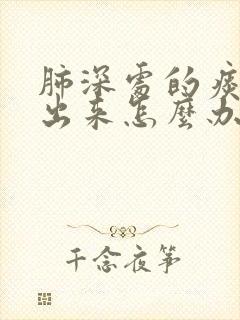 肺深處的痰
出来怎麼办
千念夜筝